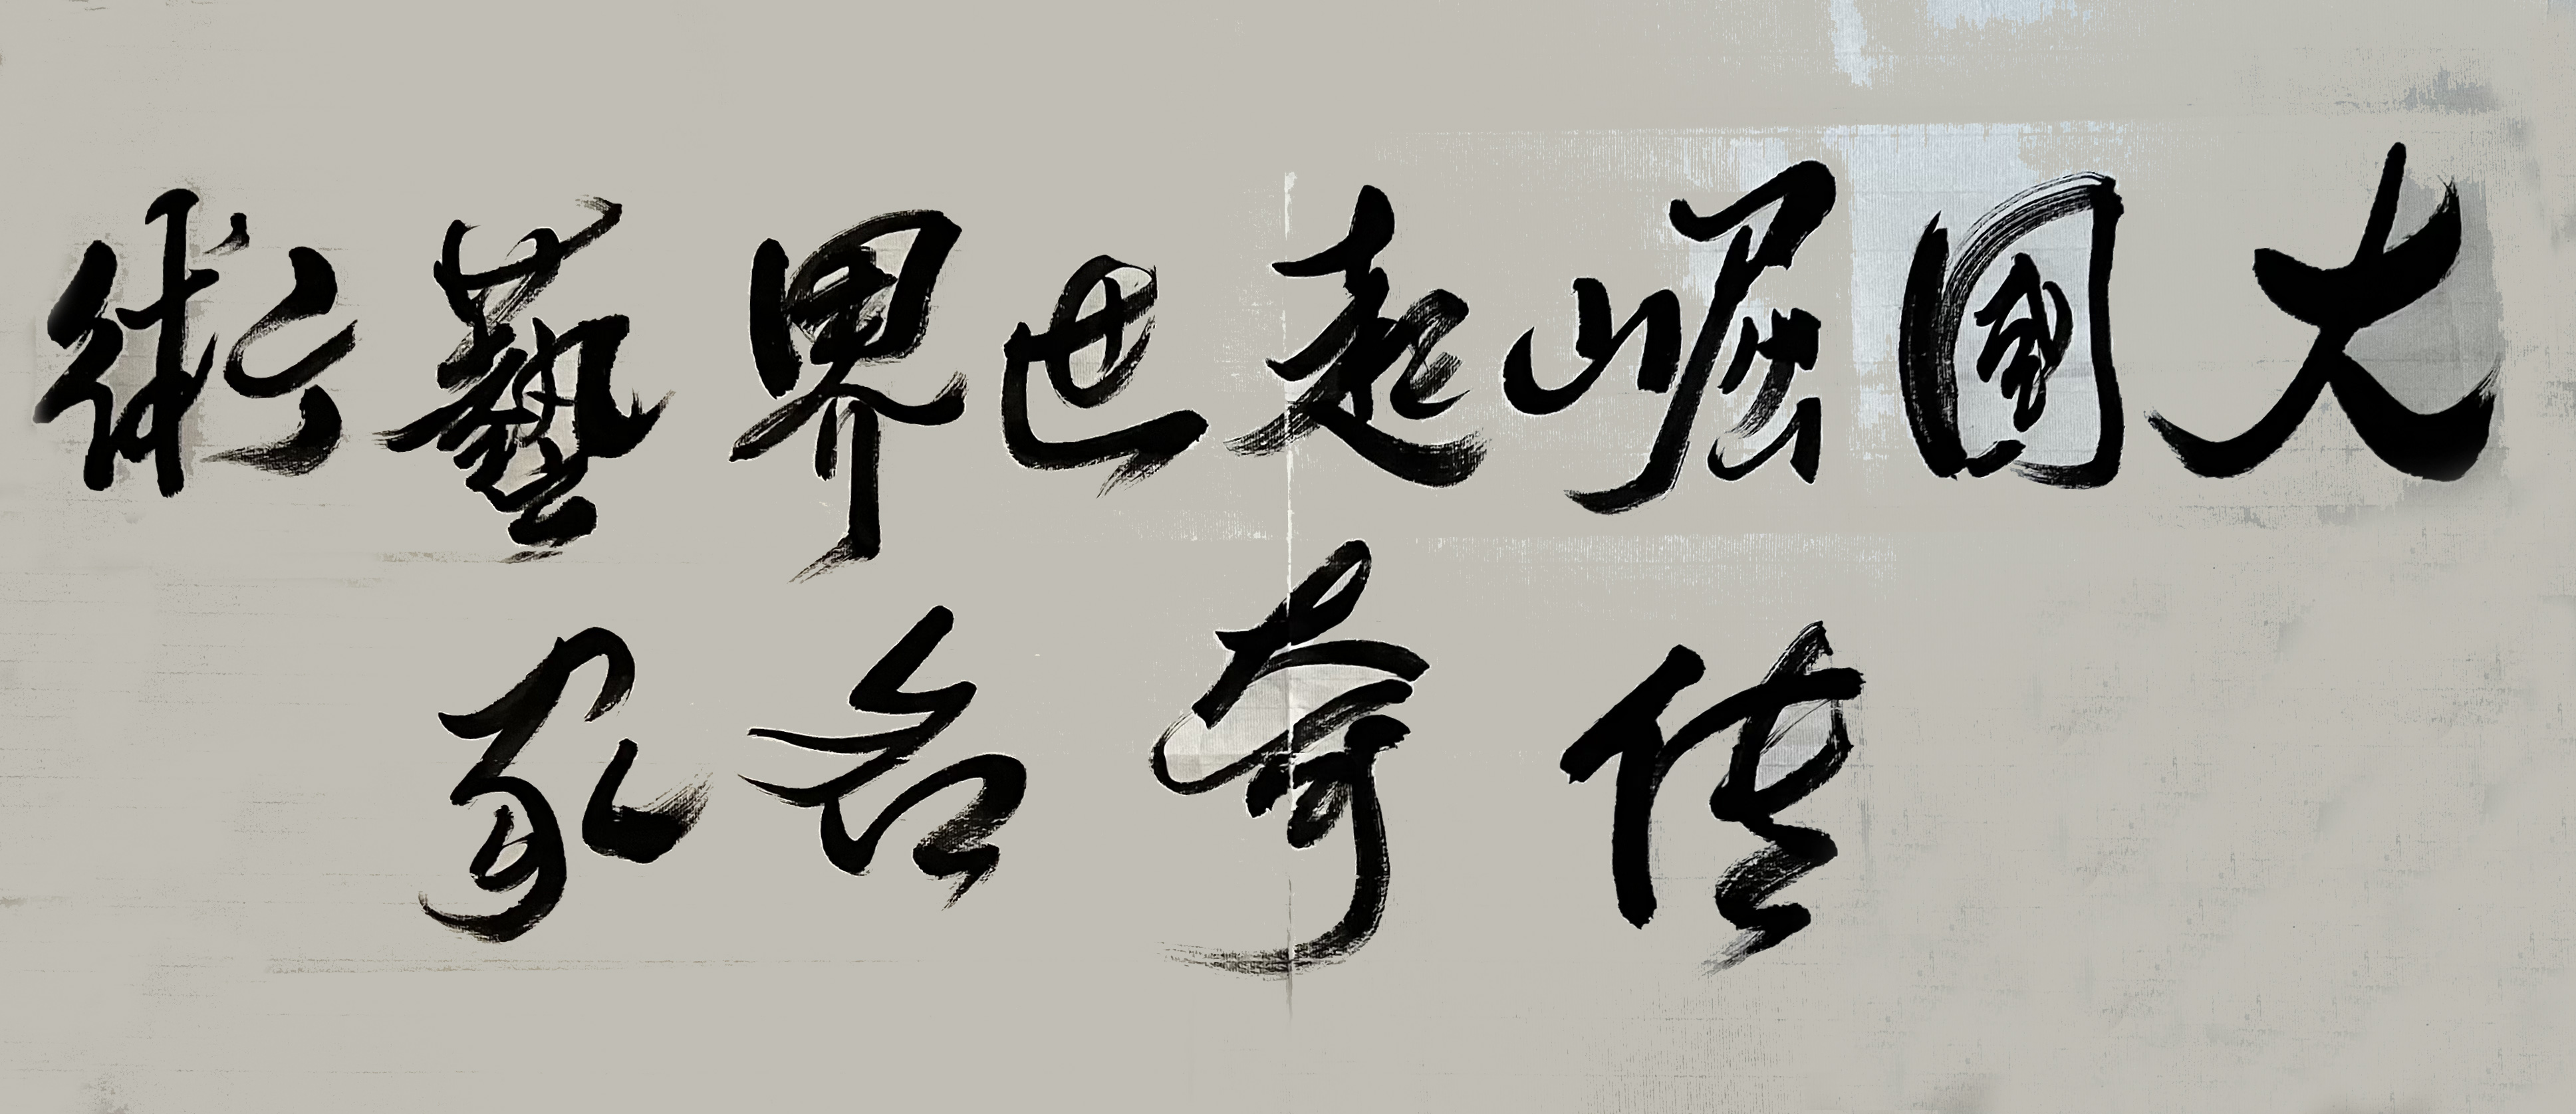 大國崛起世界藝術
传奇名家